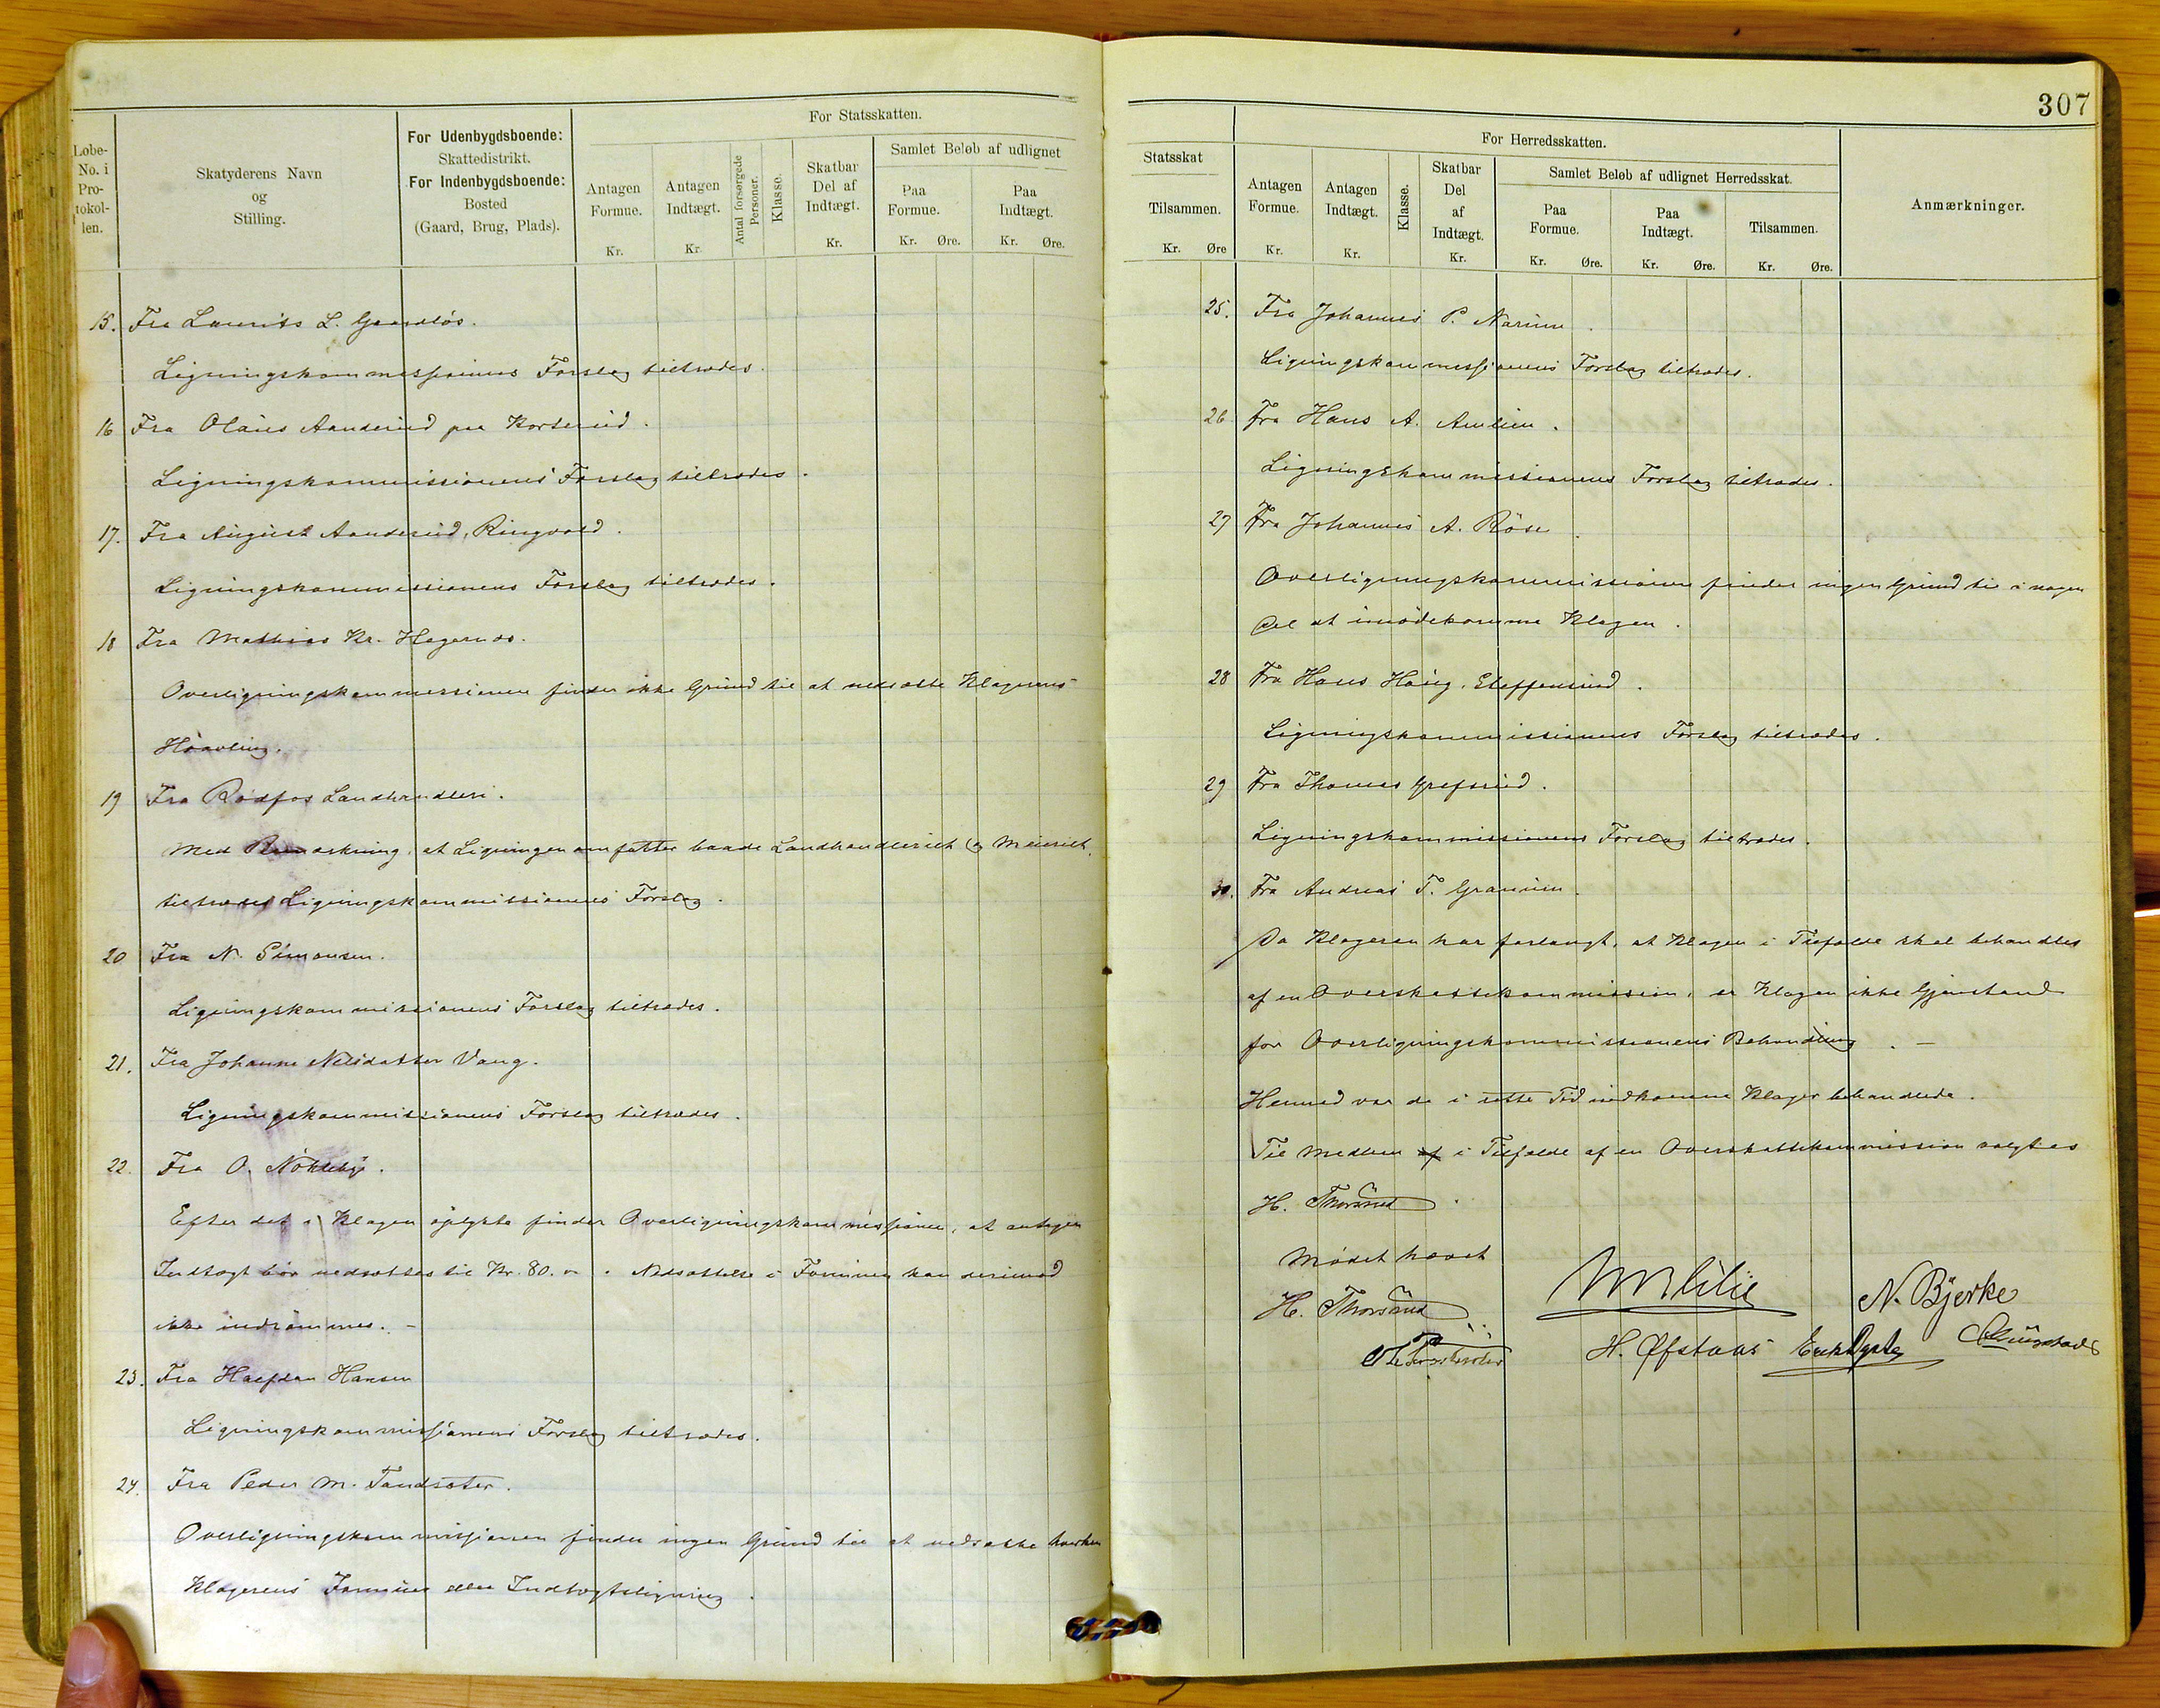 307
Løbe-
No. i
Pro-
tokol-
len.
Skatyderens Navn
og
Stilling.
For Udenbygdsboende:
Skattedistrikt.
For Indenbygdsboende:
Bosted
(Gaard, Brug, Plads).
For Statsskatten.
Antagen
Formue.
Kr.
Antagen
Indtægt.
Kr.
Antal forsørgede
Personer.
Klasse.
Skatbar
Del af
Indtægt.
Kr.
Samlet Beløb af udlignet
Paa
Formue.
Kr. Øre.
Paa
Indtægt.
Kr. Øre.
15. Fra Laurits L. Gaardløs.
Ligningskommissionens Forslag tiltrædes.
16 Fra Olaus Aanderud paa Korterud.
Ligningskommissionens Forslag tiltrædes.
17. Fra August Aanderud, Ringvold.
Ligningskommissionens Forslag tiltrædes.
18 Fra Mathias Kr. Hagernæs.
Overligningskommissionen finder ikke Grund til at nedsætte Klagerens
19 Fra Rødfos Landhandleri.
Med Bemærkning, at Ligningen omfatter baade Landhandleriet og Meieriet,
tiltrædes Ligningskommissionens Forslag.
20 Fra N. Simonsen.
Ligningskommissionens Forslag tiltrædes.
21. Fra Johanne Nilsdatter Vang.
Ligningskommissionens Forslag tiltrædes.
22. Fra O. Nøkleby.
Efter det i Klagen oplyste finder Overligningskommissionen, at antagen
Indtægt bør nedsættes til Kr. 80. Nedsættelse i Formuen kan derimod
ikke indrømmes. -
23. Fra Halfdan Hansen
Ligningskommissionens Forslag tiltrædes.
24. Fra Peder M. Tandsæter.
Overligningskommissionen finder ingen Grund til at nedsætte hverken
Klagerens Formues eller Indtægtsligning.
Statsskat
Tilsammen.
Kr. Øre
For Herredsskatten.
Antagen
Formue.
Kr.
Antagen
Indtægt.
Kr.
Klasse.
Skatbar
Del
af
Indtægt.
Kr.
Samlet Beløb af udlignet Herredsskat.
Paa
Formue.
Kr. Øre.
Paa
Indtægt.
Kr. Øre.
Tilsammen.
Kr. Øre.
Anmærkninger.
25. Fra Johannes P. Narum.
Ligningskommissionens Forslag tiltrædes.
26 Fra Hans A. Amlien.
Ligningskommissionens Forslag tiltrædes.
27 Fra Johannes A. Røse.
Overligningskommissionen finder ingen Grund til i nogen
Del at imødekomme Klagen.
28 Fra Hans Haug, Steffensrud.
Ligningskommissionens Forslag tiltrædes.
29 Fra Thomas Grefsrud.
Ligningskommissionens Forslag tiltrædes.
30. Fra Andreas T. Granum.
Da Klageren har forlangt, at Klagen i Tilfælde skal behandles
af en Overskattekommission, er Klagen ikke Gjenstand
for Overligningskommissionens Behandling. -
Hermed var de i rette Tid indkomne Klager behandlede.
Til Medlem af i Tilfælde af en Overskattekommission valgtes
H. Thorsrud.
Mødet hævet
H. Thorsrud N. Bjerke
H. Øfstaas